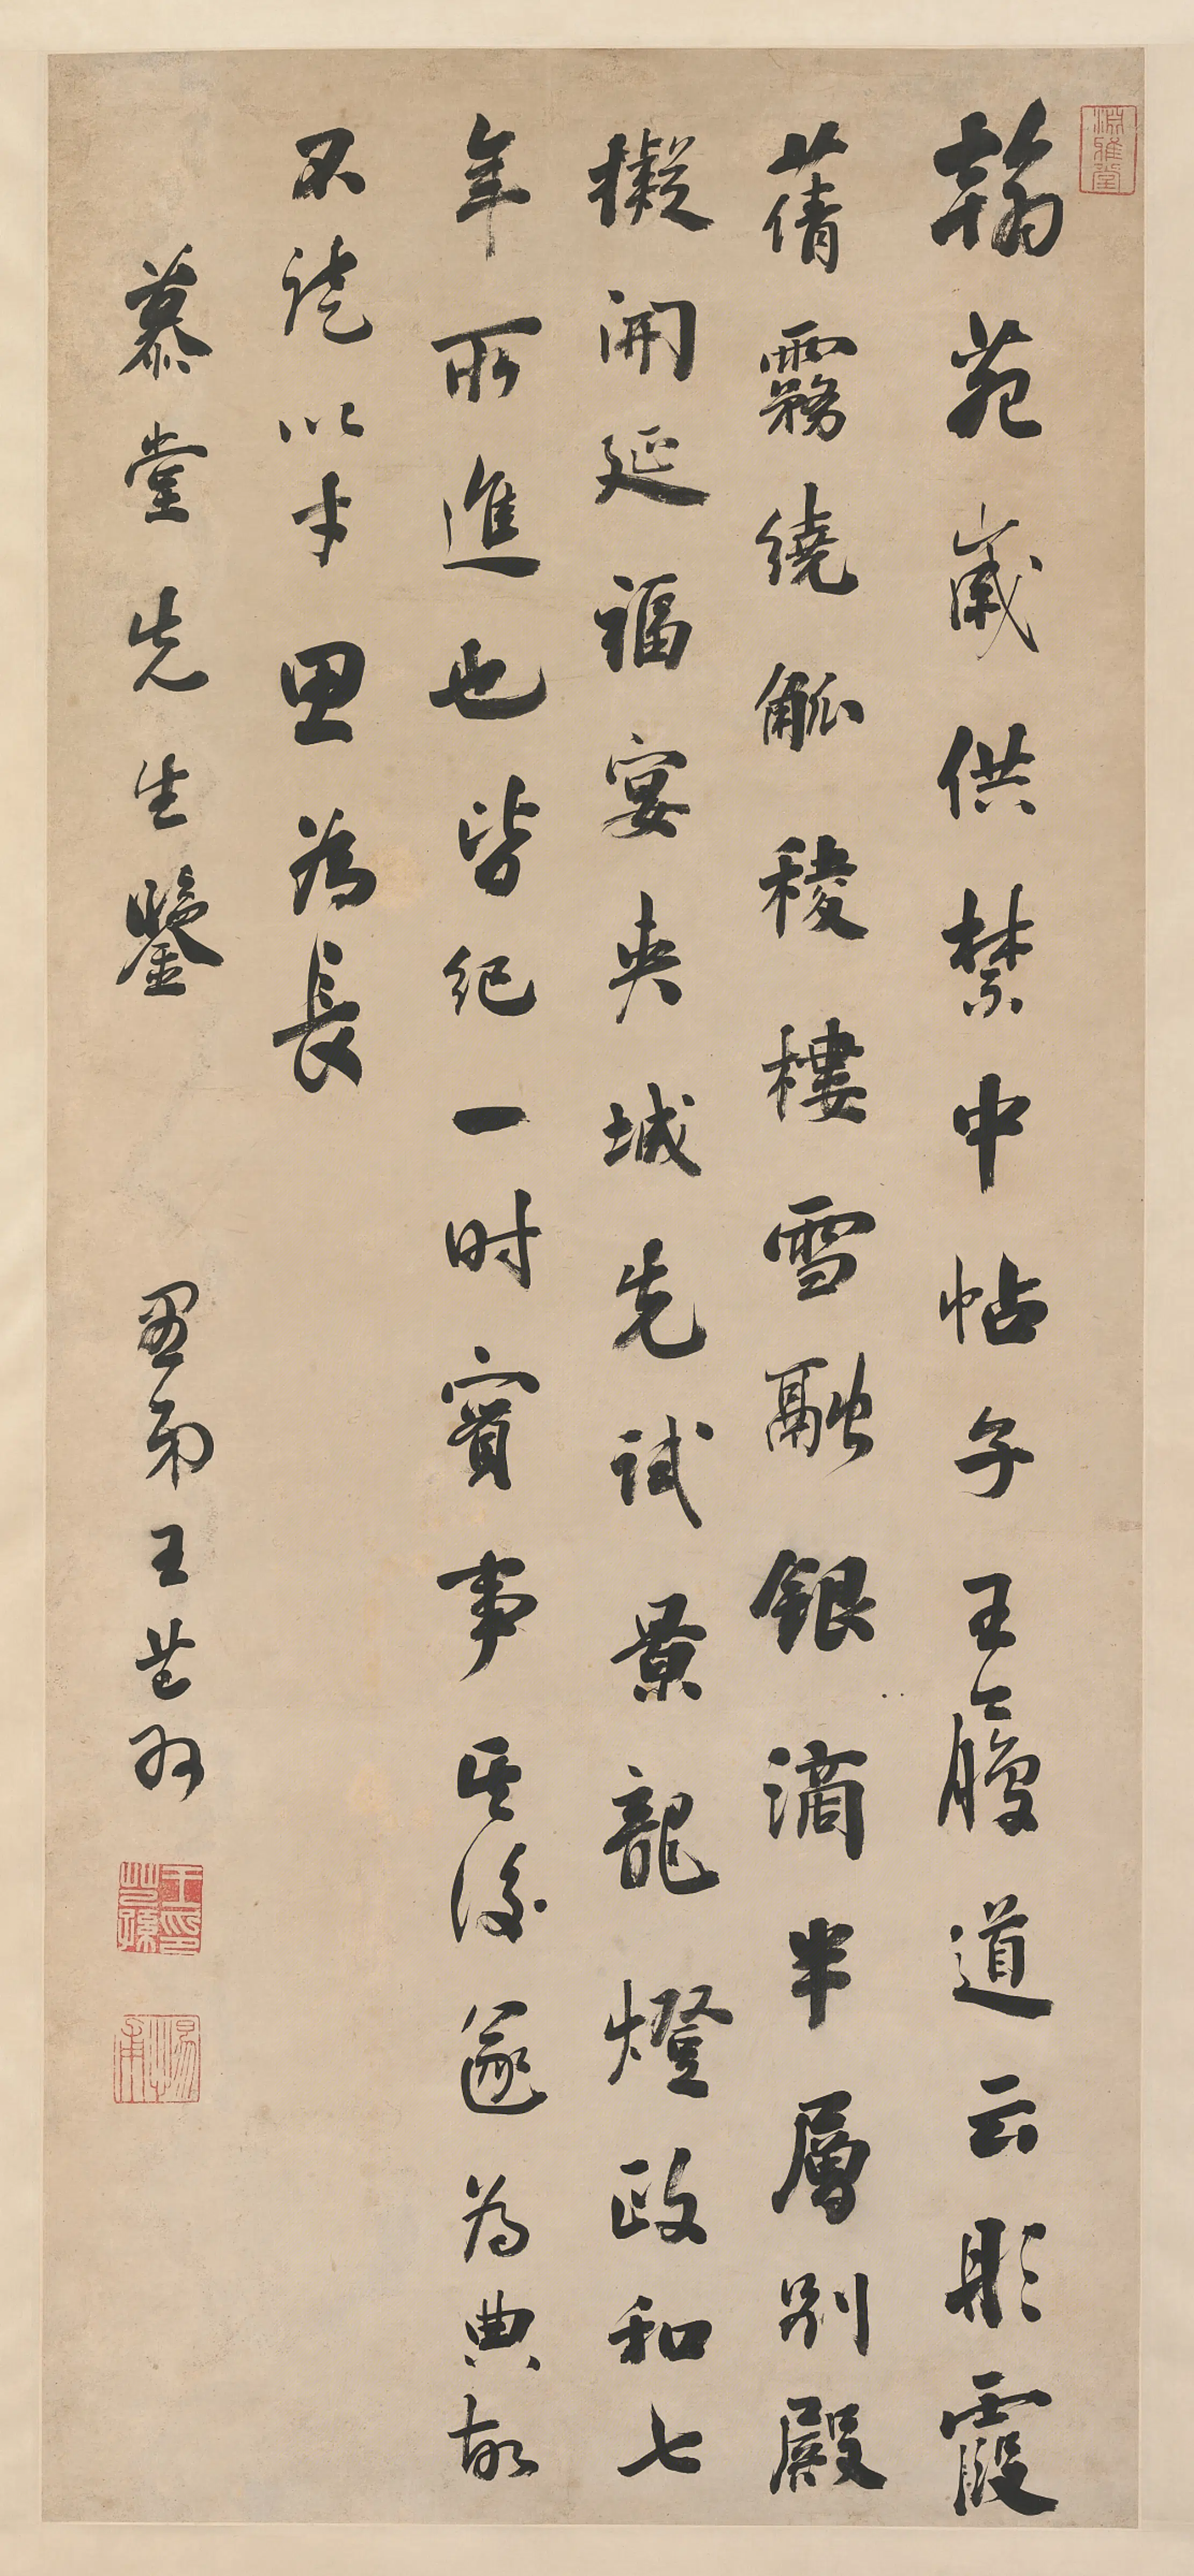 淵雅堂
翰苑歲供禁中帖子王履道云彤霞
蒨霧繞觚稜樓雪融銀滴半層別殿
擬開延福宴夾城先試景龍燈政和七
年所進也皆紀一時實事其後遂為典故
不以才思為長
慕堂先生鑒 愚弟王芑孫
王芑孫印
惕甫